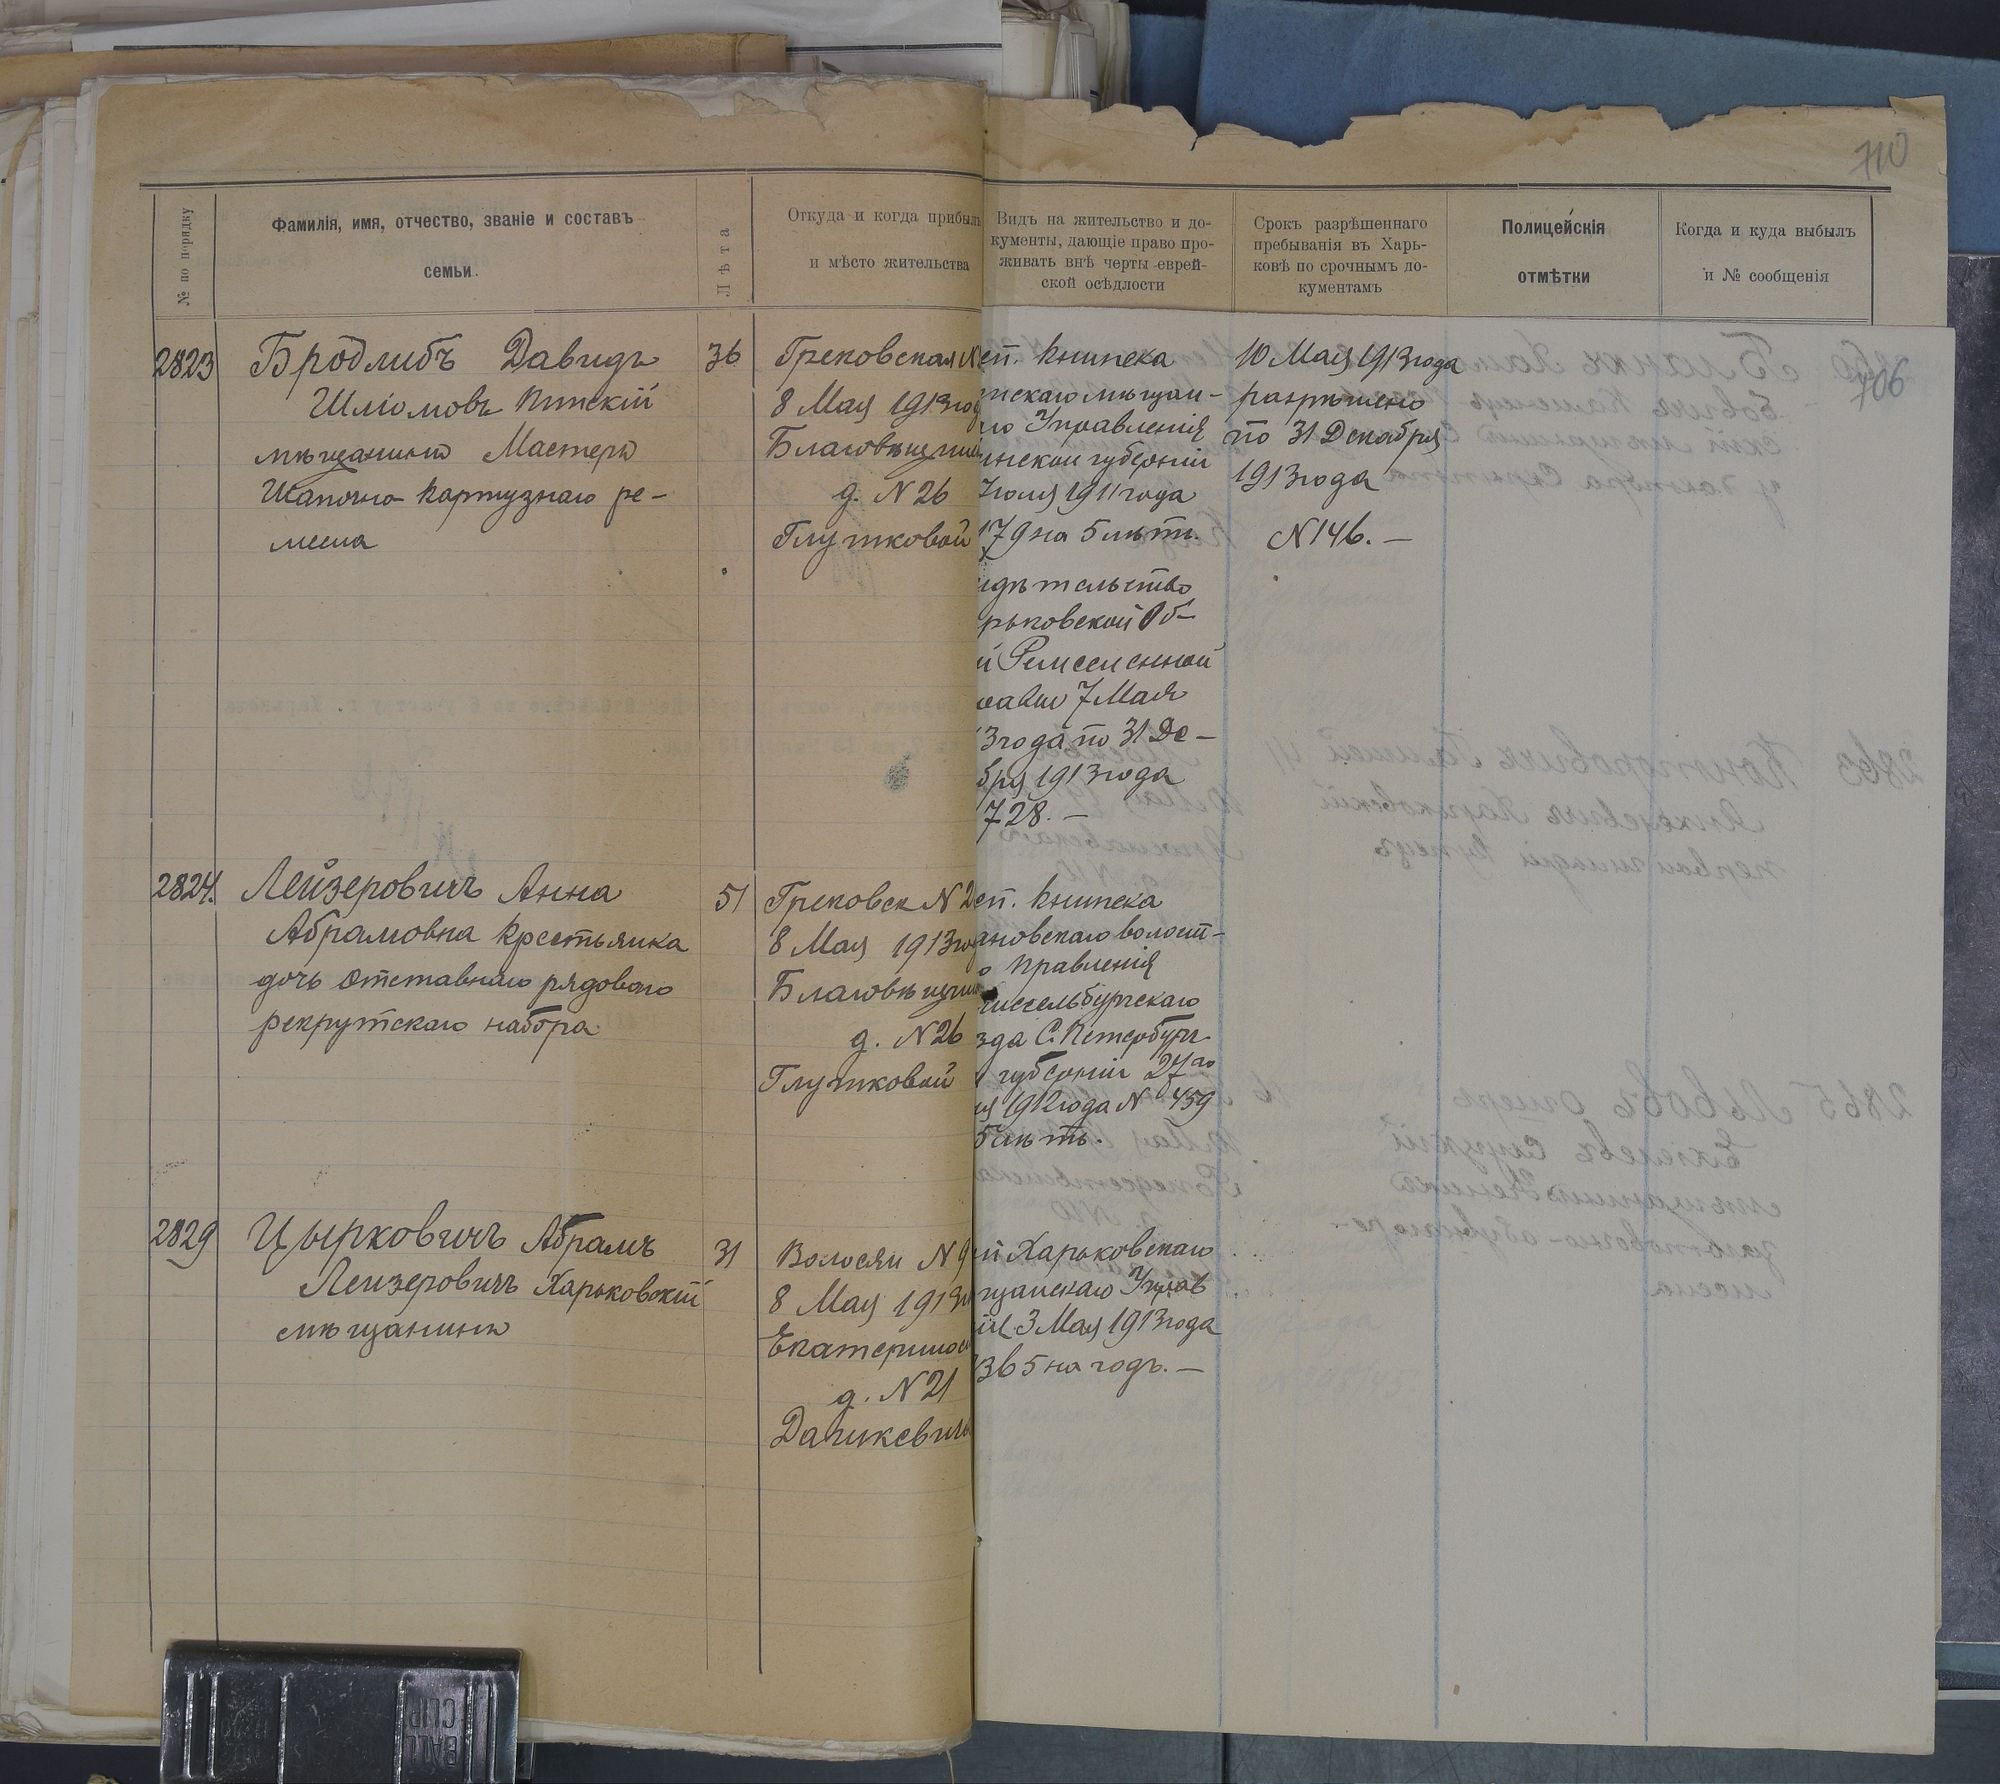 710
№ по порядку
Фамилія, имя, отчество, званіе и составъ
семьи.
Лѣта
Откуда и когда прибылъ
и мѣсто жительства
Видъ на жительство и до-
кументы, дающіе право про-
живать внѣ черты еврей-
ской осѣдлости
Срокъ разрѣшеннаго
пребыванія въ Харь-
ковѣ по срочнымъ до-
кументамъ
Полицейскія
отмѣтки
Когда и куда выбылъ
и № сообщенія
706
2823
Бродлибъ Давидъ
Шліомовъ Пинскій
мѣщанинъ Мастеръ
Шапочно-картузнаго ре-
месла
36
Грековская №
8 Мая 1913 год
Благовѣщен
д. № 26
Глушковой
еп. книжка
нскаго мѣщан-
го Управленія
инской губерніи
Іюля 1911 года
179 на 5 лѣтъ.
идѣтельство
рьковской Об-
й Ремесленной
равы 7 Мая
13 года по 31 Де-
бря 1913 года
728.-
10 Мая 1913 года
разрѣшено
по 31 Декабря
1913 года
№ 146.-
2824.
Лейзеровичъ Анна
Абрамовна крестьянка
дочь отставнаго рядоваго
рекрутскаго набора
51
Грековск № 2
8 Мая 1913 год
Благовѣщен
д. № 26
Глушковой
еп. книжка
ановскаго волост-
о Правленія
иссельбургскаго
зда С. Петербург.
губерніи 27го
я 1912 года № 459
5 лѣтъ.
2829
Цырковичъ Абрамъ
Лейзеровичъ Харьковскій
мѣщанинъ
31
Волосян № 9
8 Мая 1913
Екатеринос
д. № 21
Дашкевичъ
й Харьковскаго
щанскаго Управ
ія 3 Мая 1913 года
365 на годъ.-